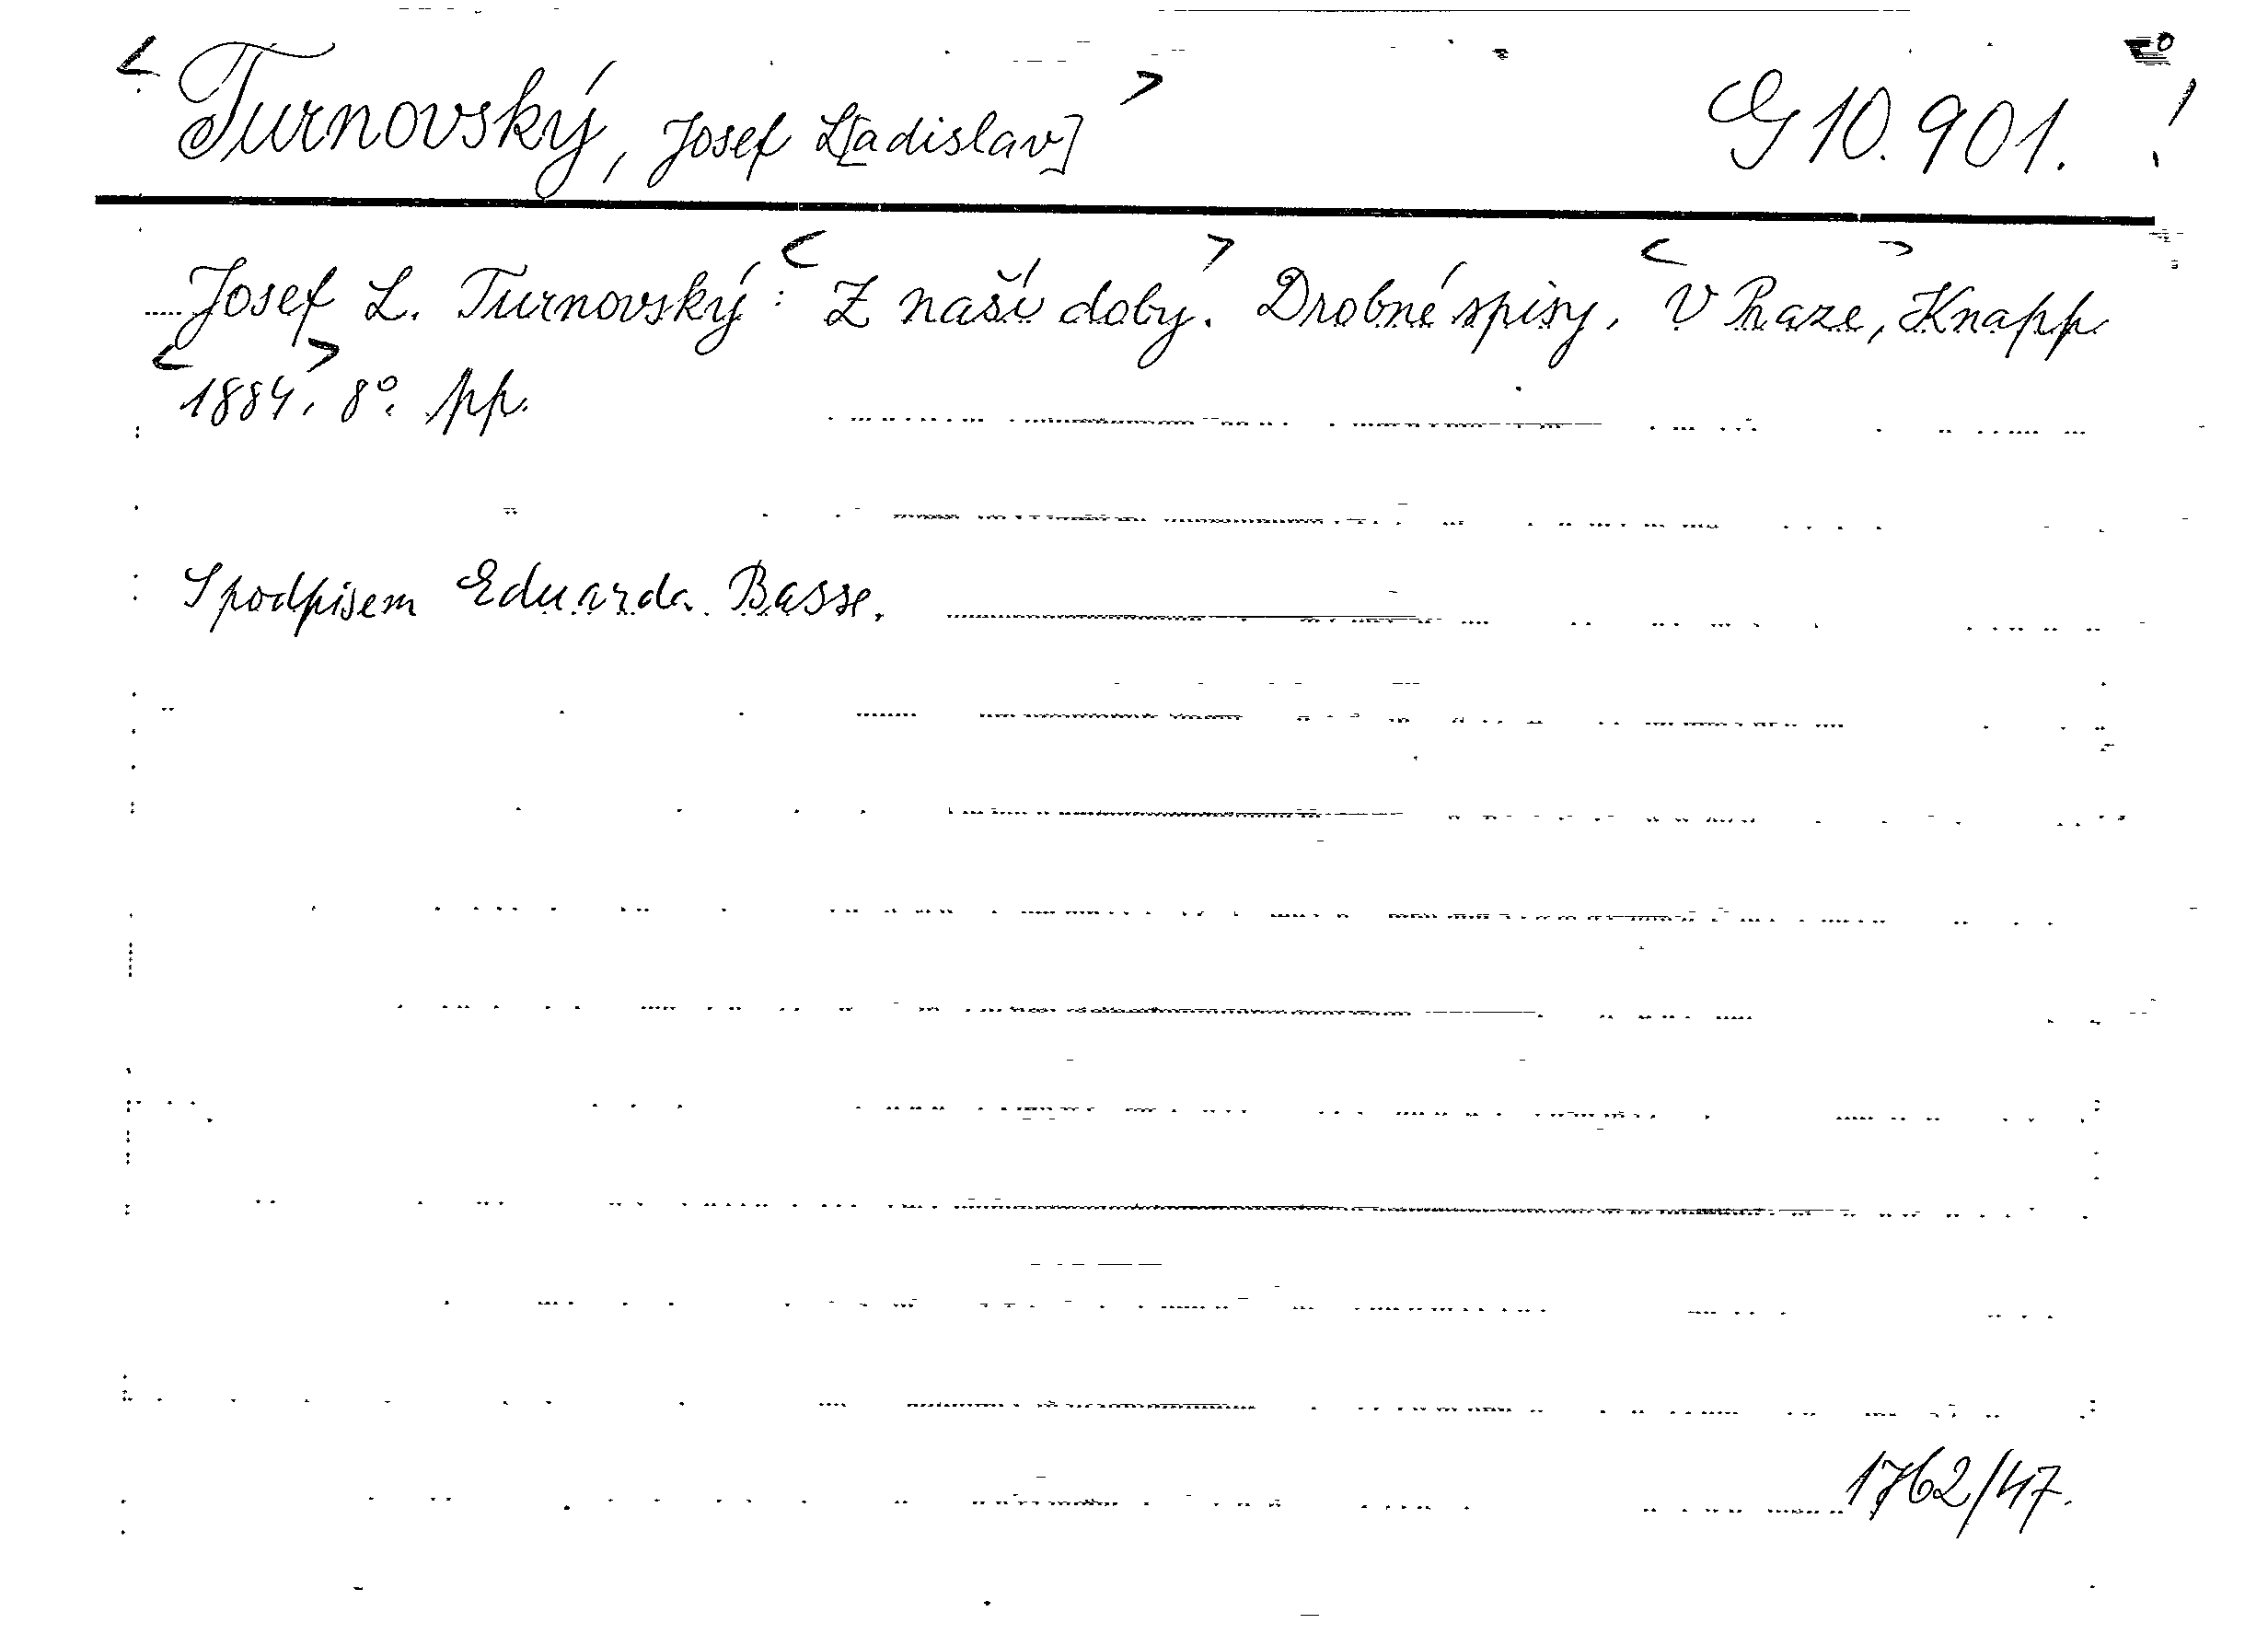 <Turnovský, Josef L[adislav]> G 10.901. !
Josef L. Turnovský: <Z naší doby.> Drobné spisy. <V Praze,> Knapp
<1884>, 8°. pp.
S podpisem Eduarda Basse.
1762/47.